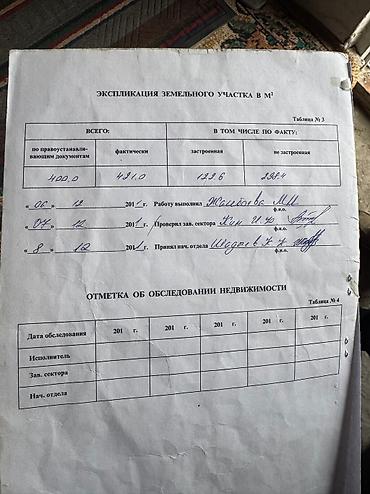 ЭКСПЛИКАЦИЯ ЗЕМЕЛЬНОГО УЧАСТКА В М²
Таблица № 3
ВСЕГО: В ТОМ ЧИСЛЕ ПО ФАКТУ:
по правоустанавливающим документам фактически застроенная не застроенная
400,0 421,0 122,6 298,4
« 06 » 12 2011 г. Работу выполнил М.И.
ф.и.о.
« 07 » 12 2011 г. Проверил зав. сектора Ким И.Ф.
ф.и.о.
« 8 » 12 2011 г. Принял нач. отдела
ф.и.о.
ОТМЕТКА ОБ ОБСЛЕДОВАНИИ НЕДВИЖИМОСТИ
Таблица № 4
Дата обследования 201 г. 201 г. 201 г. 201 г. 201 г.
Исполнитель
Зав. сектора
Нач. отдела